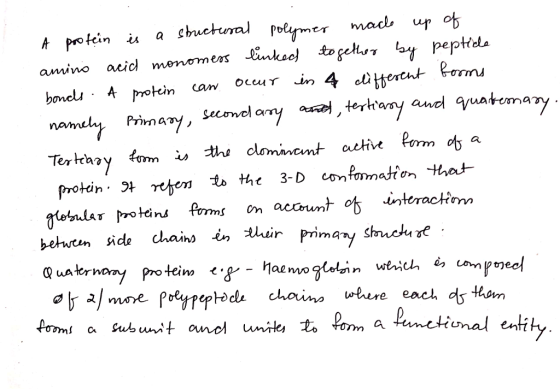 A protein is a structural polymer made up of
amino acid monomers linked together by peptide
bonds. A protein can occur in 4 different forms
namely Primary, secondary and, tertiary and quaternary.
Tertiary form is the dominant active form of a
protein. It refers to the 3-D conformation that
globular proteins forms on account of interactions
between side chains in their primary structure.
Quaternary proteins e.g - Haemoglobin which is composed
of 2/more polypeptide chains where each of them
forms a subunit and unites to form a functional entity.